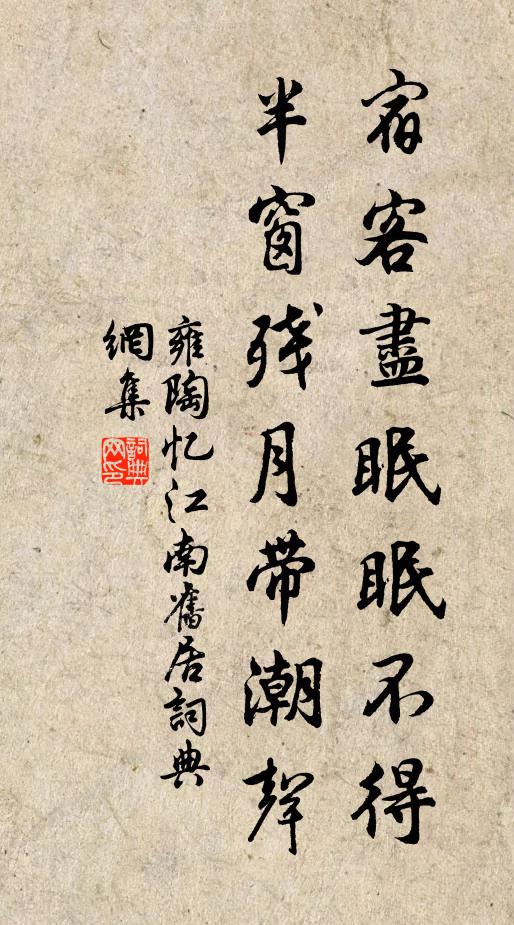 宿客盡眠眠不得
半窗殘月帶潮聲
雍陶忆江南舊居詞典
網集
詞典
网印